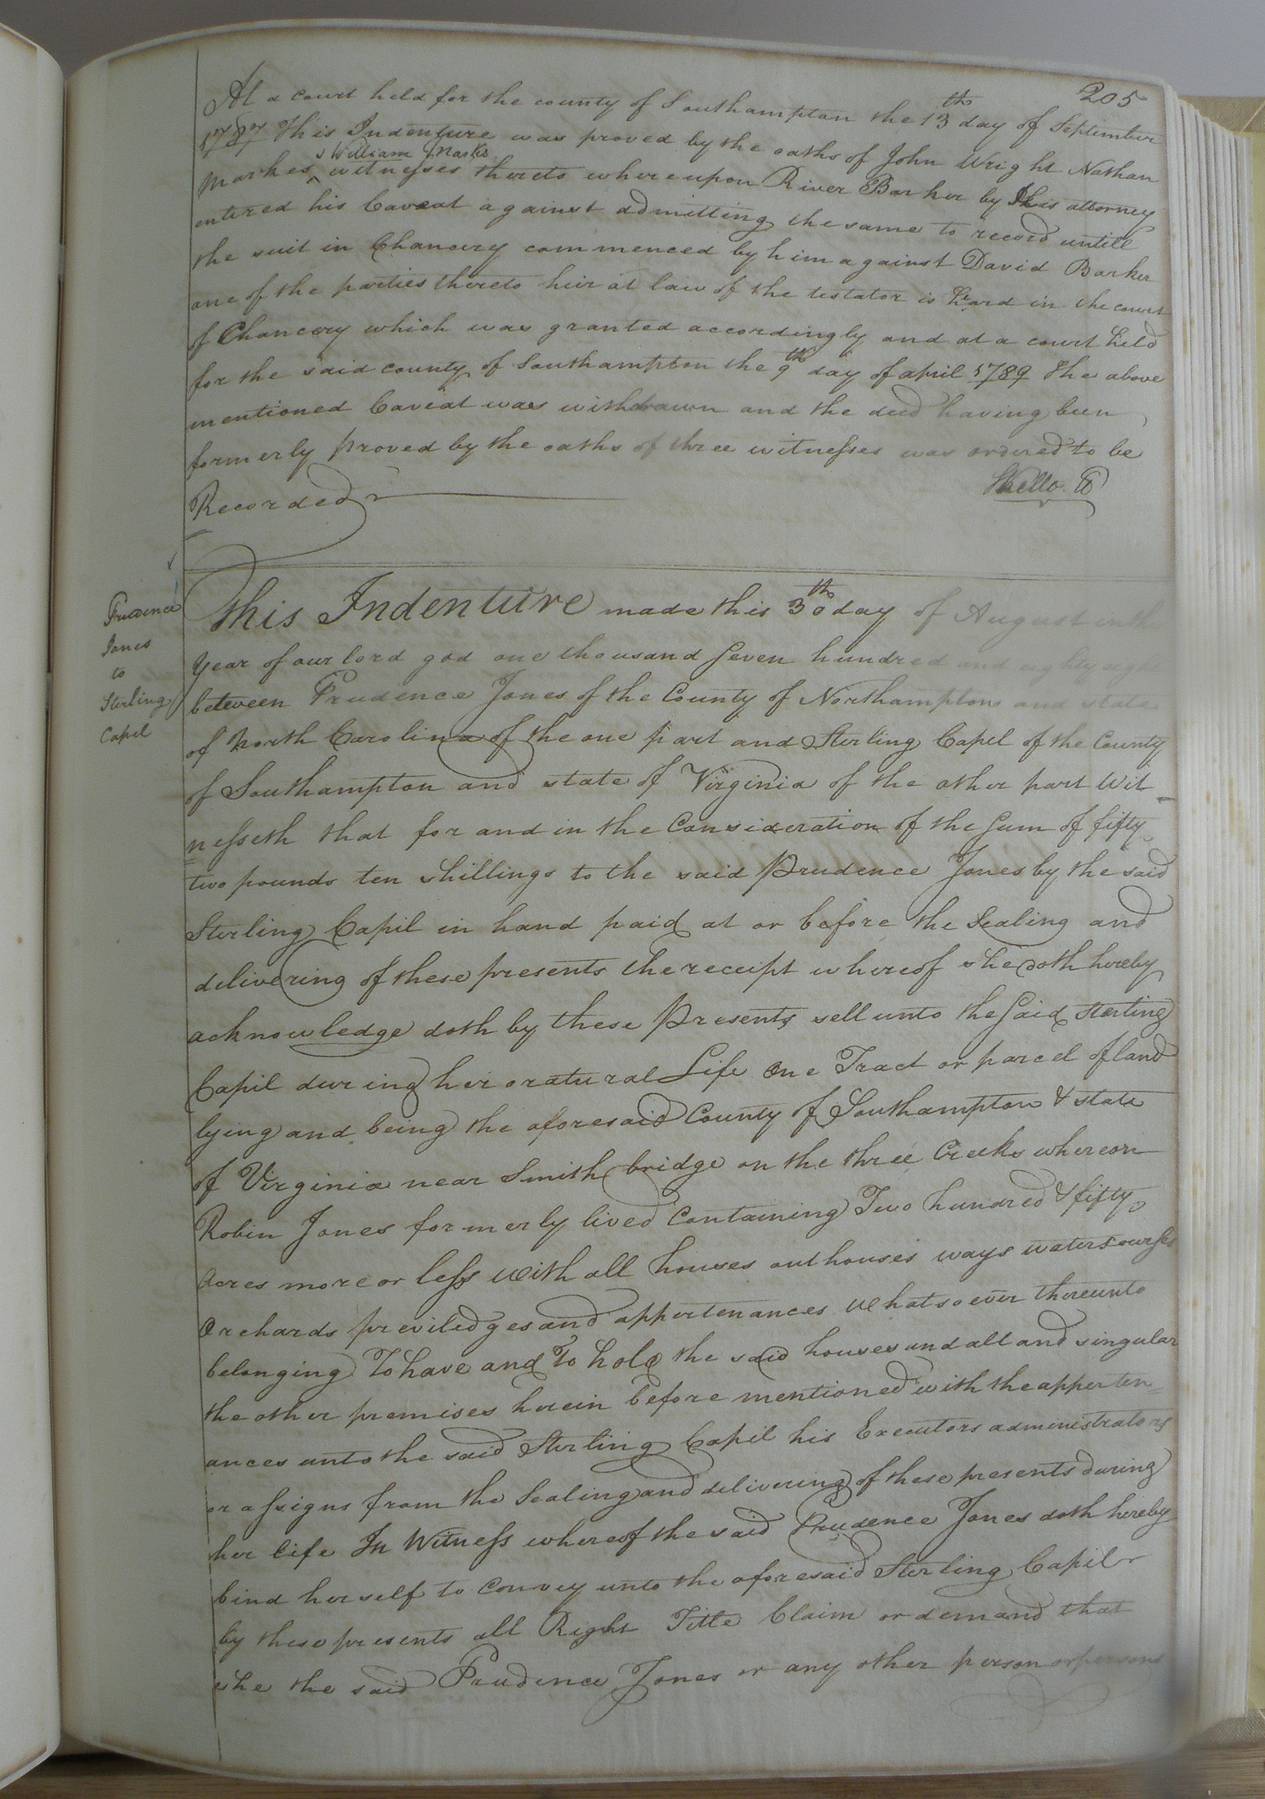 205
At a court held for the county of Southampton the 13th day of September
1787 This Indenture was proved by the oaths of John Wright Nathan
& William Marks
Markes witnesses thereto whereupon River Barker by his attorney
entered his Caveat against admitting the same to record untill
the suit in Chancery commenced by him against David Barker
one of the parties thereto heir at law of the testator is heard in the court
of Chancery which was granted accordingly and at a court held
for the said county of Southampton the 9th day of april 1789 The above
mentioned Caveat was withdrawn and the deed having been
formerly proved by the oaths of three witnesses was ordered to be
Recorded
Prudence
Jones
to
Sterling
Capel
This Indenture made this 30th day of August in the
year of our lord god one thousand Seven hundred and eighty eight
between Prudence Jones of the County of Northampton and state
of North Carolina of the one part and Sterling Capel of the County
of Southampton and state of Virginia of the other part Wit
nesseth that for and in the Consideration of the Sum of fifty
two pounds ten shillings to the said Prudence Jones by the said
Sterling Capil in hand paid at or before the Sealing and
delivering of these presents the receipt whereof she doth hereby
acknowledge doth by these Presents sell unto the Said Sterling
Capil during her oratural Life One Tract or parcel of land
lying and being the aforesaid County of Southampton & state
of Virginia near Smith bridge on the three Creeks whereon
Robin Jones formerly lived Containing Two hundred & fifty
acres more or less With all houses outhouses ways watercourses
Orchards previledges and appertenances Whatsoever thereunto
belonging To have and To hold the said houses and all and singular
the other premises herein before mentioned with the apperten=
ances unto the said Sterling Capil his Executors administrators
or assigns from the Sealing and delivering of these presents during
her life In Witness whereof the said Prudence Jones doth hereby
bind herself to Convey unto the aforesaid Sterling Capil
by these presents all Right Title Claim or demand that
she the said Prudence Jones or any other person or persons